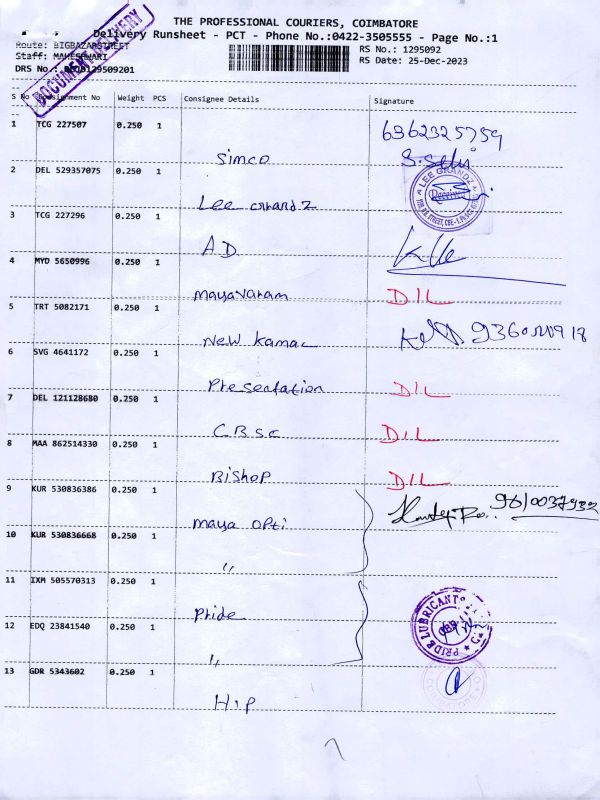 THE PROFESSIONAL COURIERS, COIMBATORE
Delivery Runsheet - PCT - Phone No.:0422-3505555 - Page No.:1
Route: BIGBAZARSTREET
RS No.: 1295092
Staff: MAHESHWARI
RS Date: 25-Dec-2023
DRS No.:
DOCUMENT DELIVERY
S No Consignment No Weight PCS Consignee Details Signature
1 TCG 227507 0.250 1
6362325759
Simco
2 DEL 529357075 0.250 1
LEE GRANDZ
Lee Grandz
3 TCG 227296 0.250 1
A.D
4 MYD 5650996 0.250 1
mayavaram D/L
5 TRT 5082171 0.250 1
New Kamal
6 SVG 4641172 0.250 1
Presentation D/L
7 DEL 121128680 0.250 1
C.B.S.C D/L
8 MAA 862514330 0.250 1
Bishop D/L
9 KUR 530836386 0.250 1
maya opti 9610037932
10 KUR 530836668 0.250 1
"
11 IXM 505570313 0.250 1
Pride
PRIDE LUBRICANTS
12 EDQ 23841540 0.250 1
"
13 GDR 5343602 0.250 1
H.P